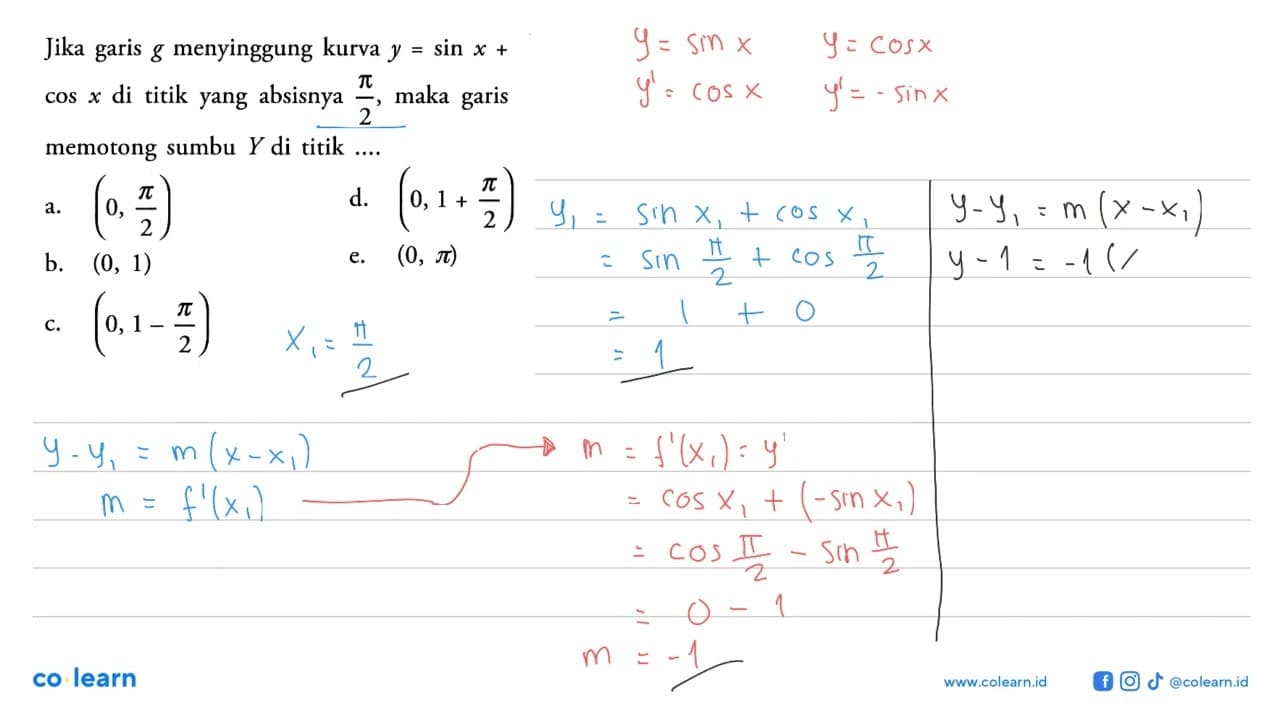 Jika garis g menyinggung kurva y = sin x +
cos x di titik yang absisnya π/2, maka garis
memotong sumbu Y di titik ....
a. (0, π/2)
b. (0, 1)
c. (0, 1 – π/2)
d. (0, 1 + π/2)
e. (0, π)
x₁ = π/2
y = sin x
y' = cos x
y = cos x
y' = - sin x
y₁ = sin x₁ + cos x₁
= sin π/2 + cos π/2
= 1 + 0
= 1
y - y₁ = m (x - x₁)
y - 1 = -1 (
y - y₁ = m (x - x₁)
m = f'(x₁)
m = f'(x₁) = y'
= cos x₁ + (-sin x₁)
= cos π/2 - sin π/2
= 0 - 1
m = -1
co learn
www.colearn.id
@colearn.id